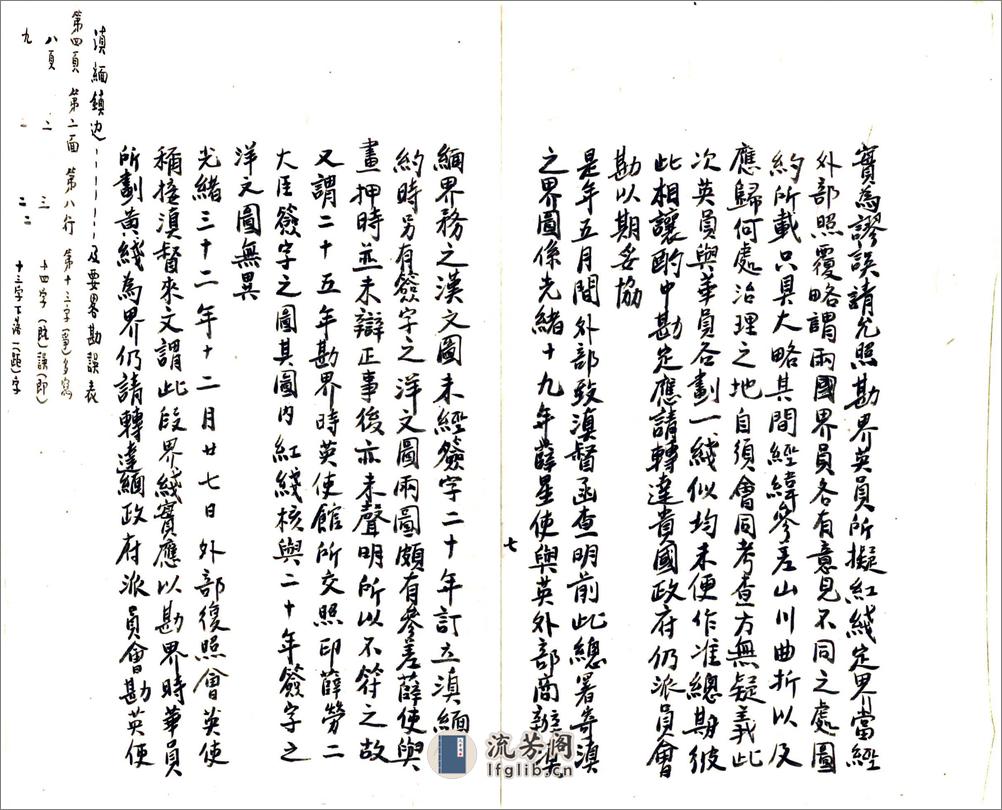 實為謬誤請允照勘界英員所擬紅綫定界當經
外部照覆略謂兩國界員各有意見不同之處圖
約所載只具大略其間經緯參差山川曲折以及
應歸何處治理之地自須會同考查方無疑義此
次英員與華員各劃一綫似均未便作准總期彼
此相讓酌中勘定應請轉達貴國政府仍派員會
勘以期妥協
是年五月間外部致滇督函查明前此總署寄滇
之界圖係光緒十九年薛星使與英外部商辦滇
七
緬界務之漢文圖未經簽字二十年訂立滇緬
約時另有簽字之洋文圖兩圖頗有參差薛使與
畫押時並未辯正事後亦未聲明所以不符之故
又謂二十五年勘界時英使館所交照印薛勞二
大臣簽字之圖其圖內紅綫核與二十年簽字之
洋文圖無異
光緒三十二年十二月廿七日外部復照會英使
稱接滇督來文謂此段界綫實應以勘界時華員
所劃黃綫為界仍請轉達緬政府派員會勘英使
滇緬鎮边-----及要畧勘誤表
第四頁 第二面 第八行 第十三字(事)多寫
八頁 二 三 十四字(既)誤(即)
九 一 二二 十三字下落一(題)字
流芳閣
lfglib.cn